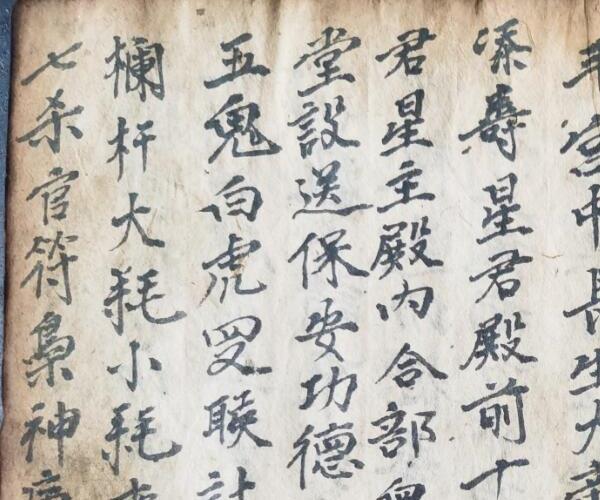 宮中長生大
添壽星君殿前十
君星主殿内合部眾
堂設送保安功德
五鬼白虎計
欄杆大耗小耗
七杀官符梟神